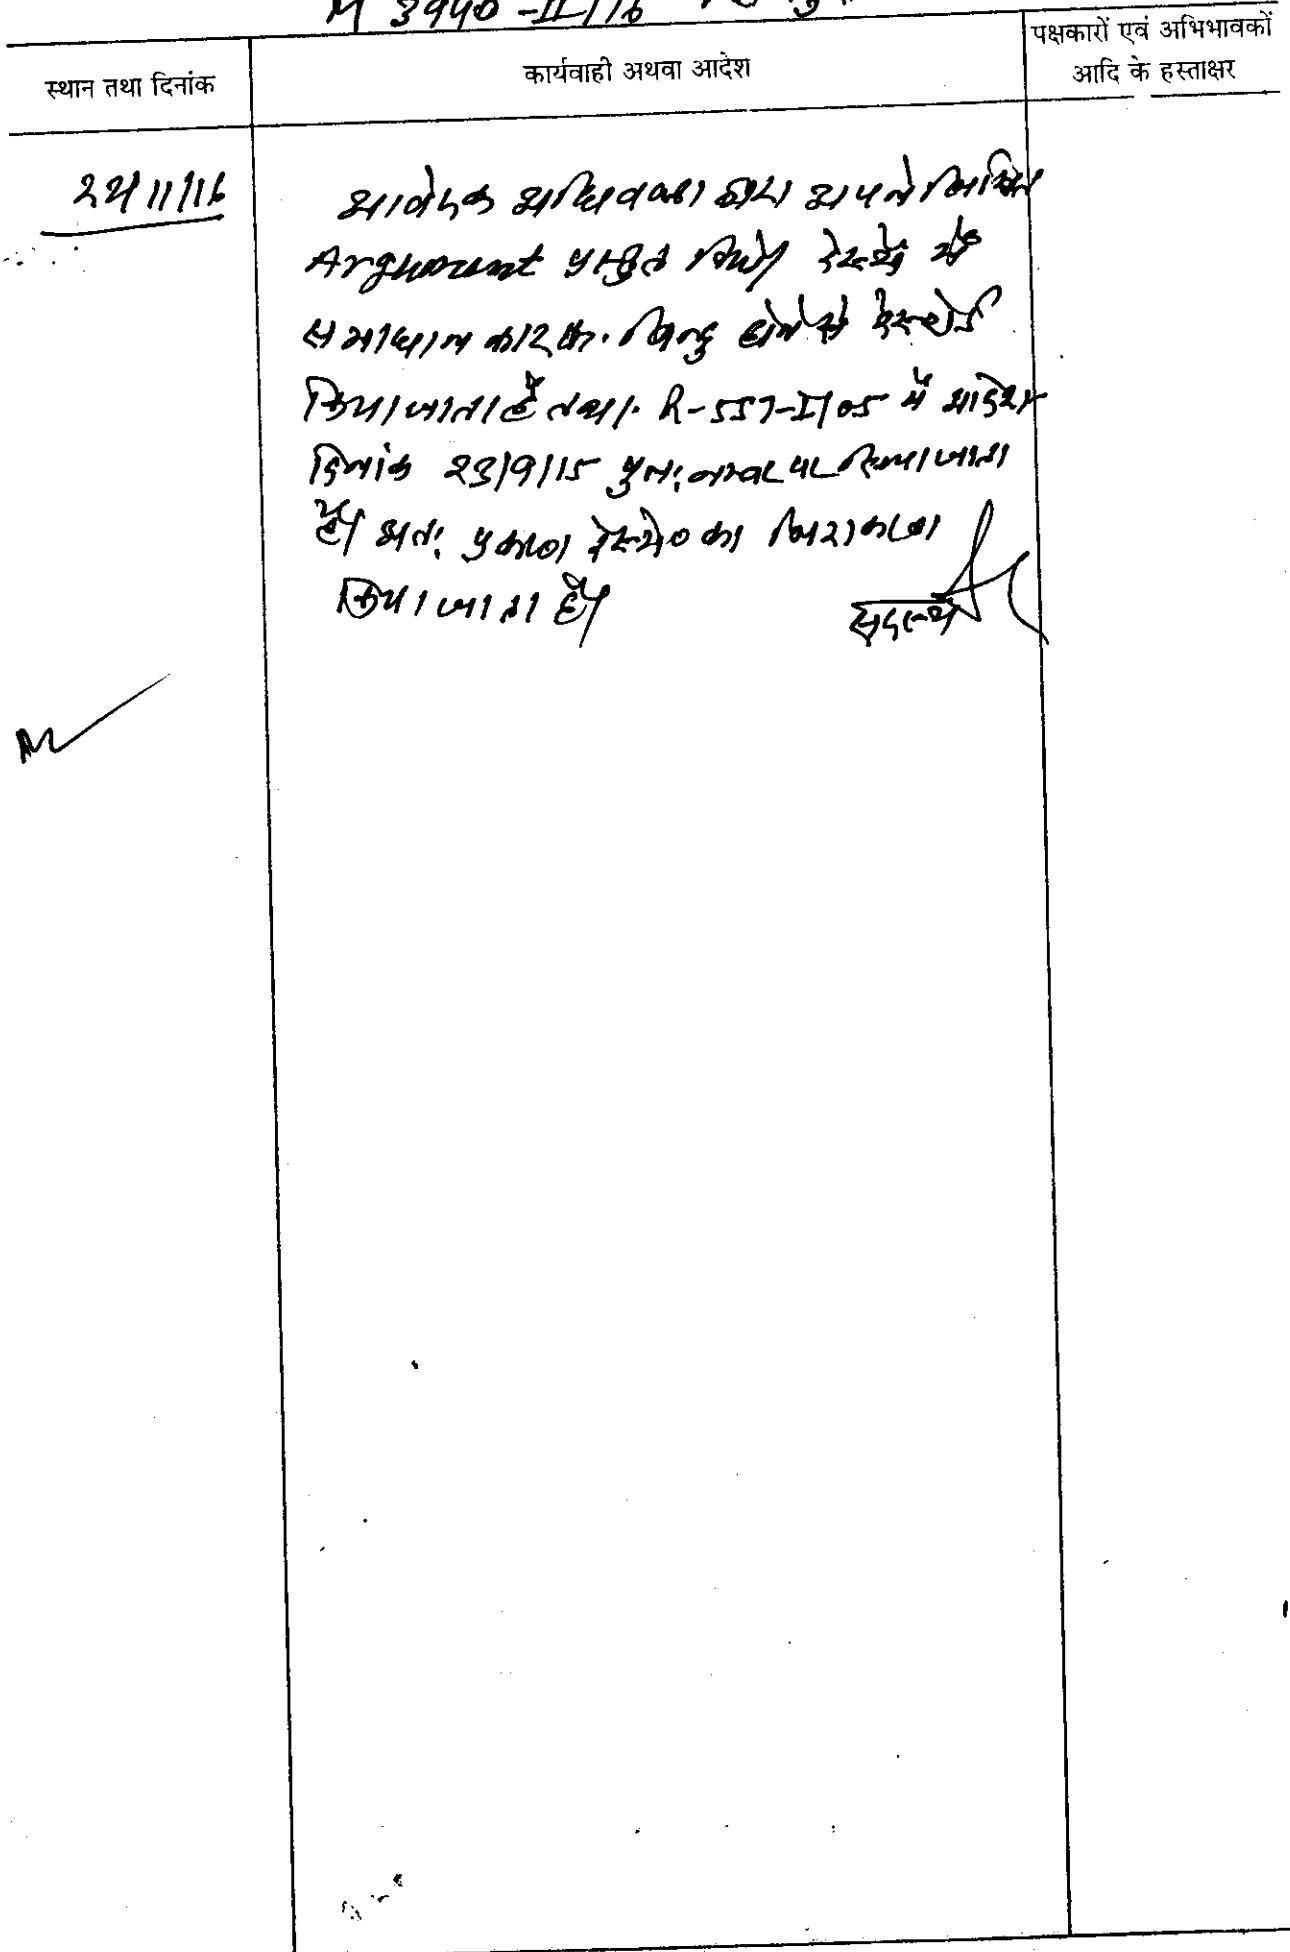 M 3940-II/16
स्थान तथा दिनांक
कार्यवाही अथवा आदेश
पक्षकारों एवं अभिभावकों
आदि के हस्ताक्षर
22/11/16
आवेदक अधिवक्ता द्वारा अपने लिखित
Argument प्रस्तुत किये। रेस्टो में
समाधान कारक बिन्दु होने से रेस्टोर
किया जाता है तथा R-557-I/05 में आदेश
दिनांक 23/9/15 पुनः नम्बर पर लिया जाता
है। अतः प्रकरण रेस्टो० का निराकरण
किया जाता है।
सदस्य